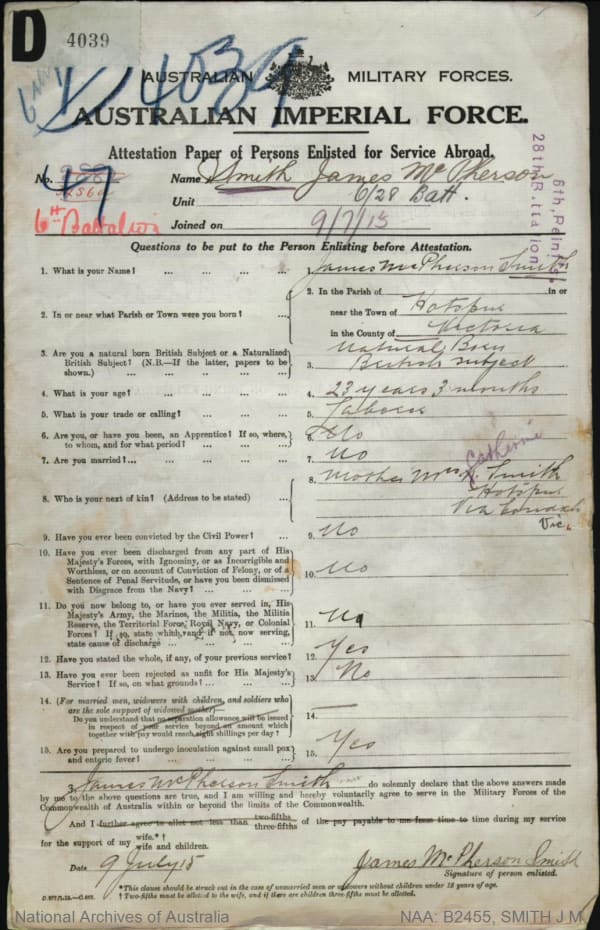 D
4039
4039
AUSTRALIAN MILITARY FORCES.
AUSTRALIAN IMPERIAL FORCE.
Attestation Paper of Persons Enlisted for Service Abroad.
No. 47 Name Smith James McPherson
6th Battalion
Unit 6/28 Batt.
Joined on 9/7/15
28th Battalion
6th Reinfts
Questions to be put to the Person Enlisting before Attestation.
1. What is your Name? ... ... ... James McPherson Smith
2. In or near what Parish or Town were you born? ... 2. In the Parish of in or
near the Town of Hotspur
in the County of Victoria
3. Are you a natural born British Subject or a Naturalized
British Subject? (N.B.—If the latter, papers to be
shown.) ... ... ... 3. Natural Born
British subject
4. What is your age? ... ... ... 4. 23 years 3 months
5. What is your trade or calling? ... ... ... 5. Laborer
6. Are you, or have you been, an Apprentice? If so, where,
to whom, and for what period? ... ... 6. No
7. Are you married?... ... ... ... 7. No
8. Who is your next of kin? (Address to be stated) ... 8. Mother Mrs Smith
Catherine
Hotspur
Via Condah
Vic.
9. Have you ever been convicted by the Civil Power? ... 9. No
10. Have you ever been discharged from any part of His
Majesty's Forces, with Ignominy, or as Incorrigible and
Worthless, or on account of Conviction of Felony, or of a
Sentence of Penal Servitude, or have you been dismissed
with Disgrace from the Navy? ... ... 10. No
11. Do you now belong to, or have you ever served in, His
Majesty's Army, the Marines, the Militia, the Militia
Reserve, the Territorial Force, Royal Navy, or Colonial
Forces? If so, state which, and if not, now serving,
state cause of discharge ... ... 11. No
12. Have you stated the whole, if any, of your previous service? 12. Yes
13. Have you ever been rejected as unfit for His Majesty's
Service? If so, on what grounds? ... ... 13. No
14. (For married men, widowers with children, and soldiers who
are the sole support of widowed mother)—
Do you understand that no separation allowance will be issued
in respect of your service beyond an amount which
together with pay would reach eight shillings per day? 14. —
15. Are you prepared to undergo inoculation against small pox
and enteric fever? ... ... ... 15. Yes
I, James McPherson Smith do solemnly declare that the above answers made
by me to the above questions are true, and I am willing and hereby voluntarily agree to serve in the Military Forces of the
Commonwealth of Australia within or beyond the limits of the Commonwealth.
And I further agree to allot not less than two-fifths three-fifths of the pay payable to me from time to time during my service
for the support of my wife.* † wife and children.
Date 9 July 15 James McPherson Smith
Signature of person enlisted.
*This clause should be struck out in the case of unmarried men or widowers without children under 18 years of age.
† Two-fifths must be allotted to the wife, and if there are children three-fifths must be allotted.
National Archives of Australia NAA: B2455, SMITH J M